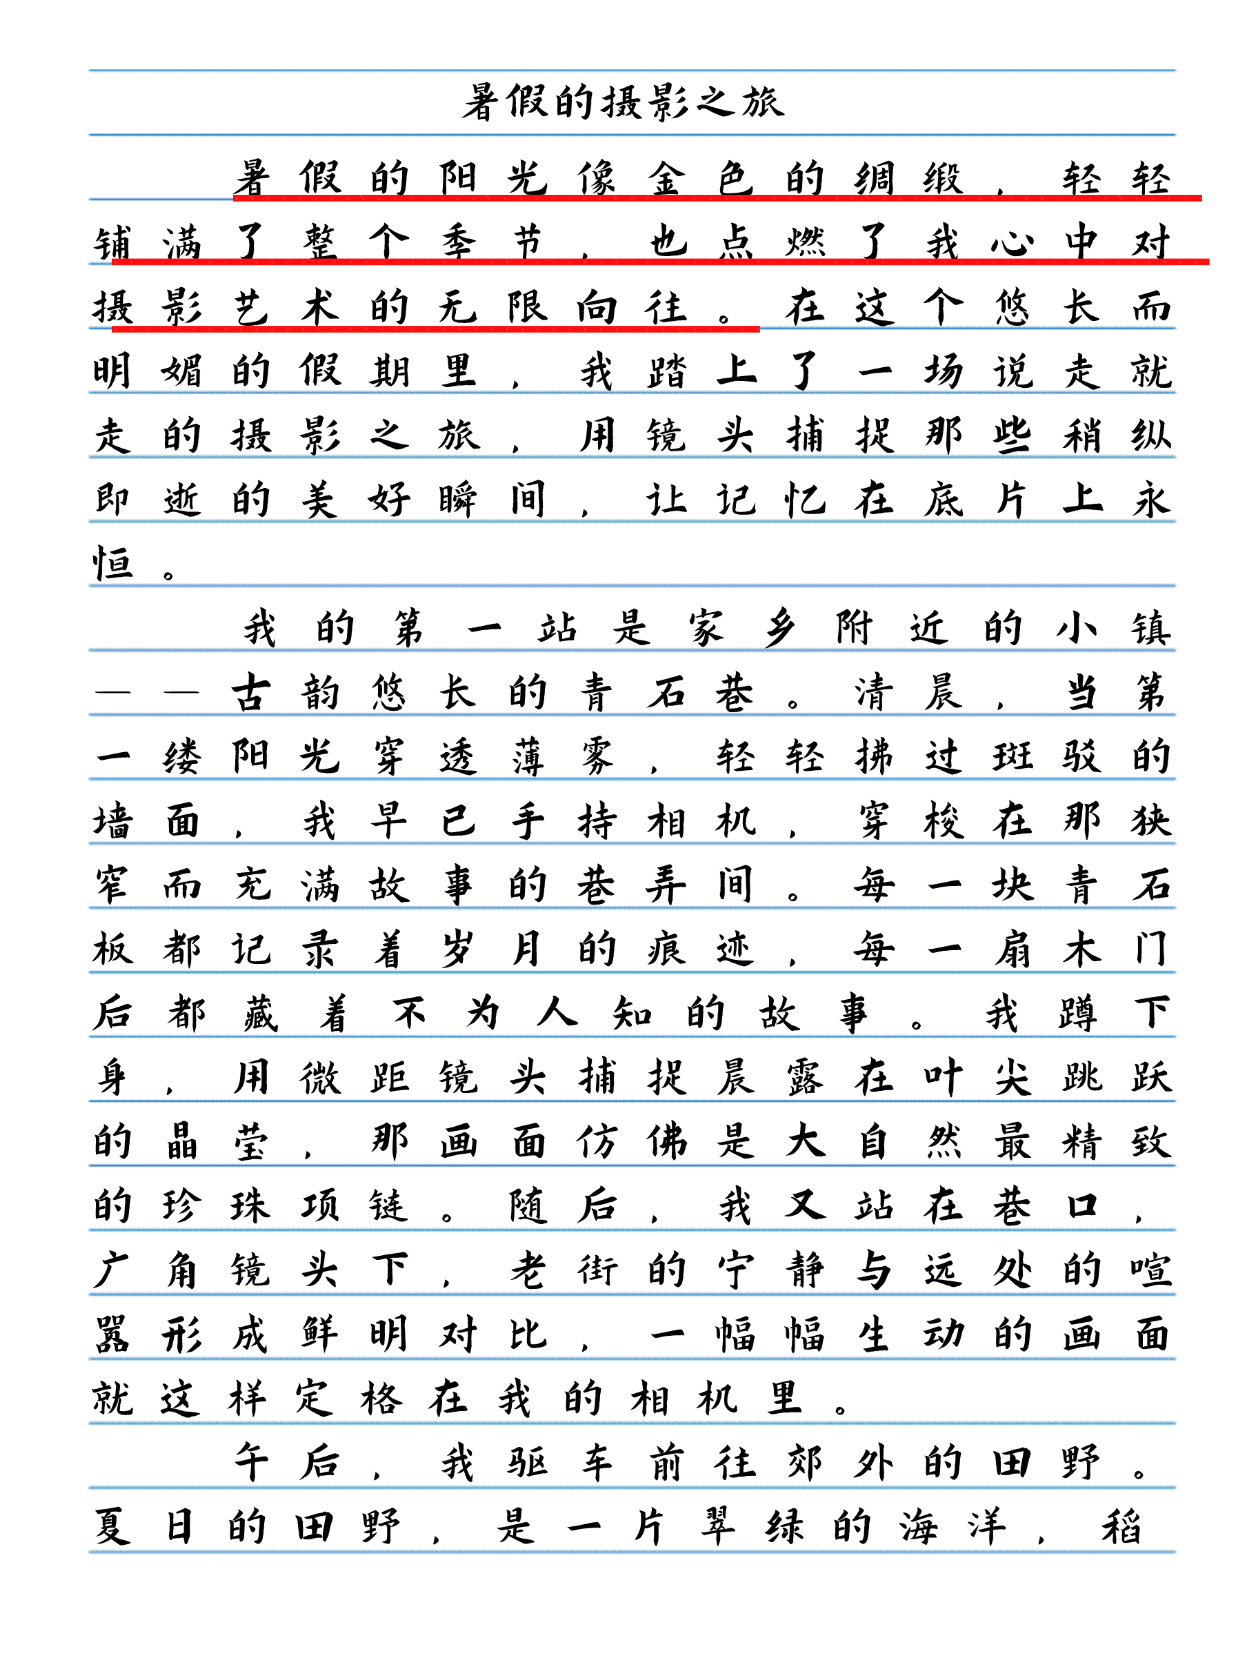 暑假的摄影之旅
暑假的阳光像金色的绸缎，轻轻
铺满了整个季节，也点燃了我心中对
摄影艺术的无限向往。在这个悠长而
明媚的假期里，我踏上了一场说走就
走的摄影之旅，用镜头捕捉那些稍纵
即逝的美好瞬间，让记忆在底片上永
恒。
我的第一站是家乡附近的小镇
——古韵悠长的青石巷。清晨，当第
一缕阳光穿透薄雾，轻轻拂过斑驳的
墙面，我早已手持相机，穿梭在那狭
窄而充满故事的巷弄间。每一块青石
板都记录着岁月的痕迹，每一扇木门
后都藏着不为人知的故事。我蹲下
身，用微距镜头捕捉晨露在叶尖跳跃
的晶莹，那画面仿佛是大自然最精致
的珍珠项链。随后，我又站在巷口，
广角镜头下，老街的宁静与远处的喧
嚣形成鲜明对比，一幅幅生动的画面
就这样定格在我的相机里。
午后，我驱车前往郊外的田野。
夏日的田野，是一片翠绿的海洋，稻